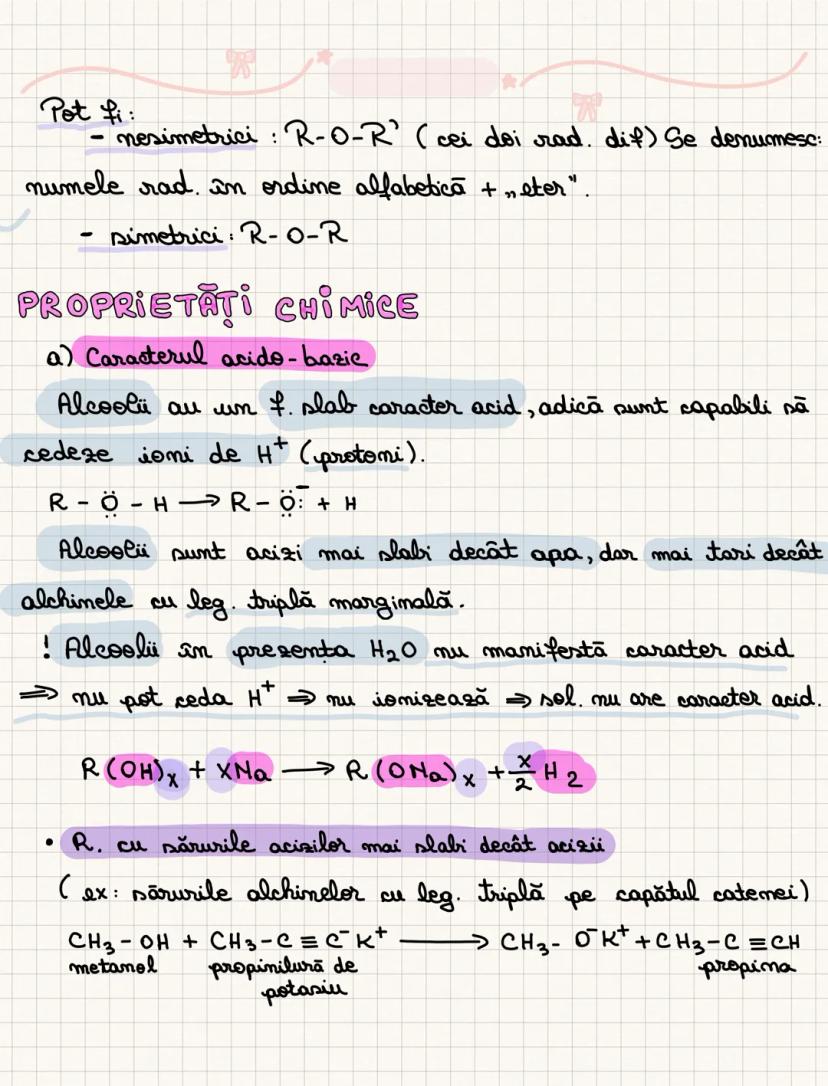 Pot fi:
- nesimetrici : R-O-R' (cei doi rad. dif) Se denumesc:
numele rad. în ordine alfabetică + „eter".
- simetrici: R-O-R
PROPRIETĂȚI CHIMICE
a) Caracterul acido-bazic
Alcoolii au un f. slab caracter acid, adică sunt capabili să
cedeze ioni de H⁺ (protoni).
R - Ö̤ - H → R - Ö̤:⁻ + H
Alcoolii sunt acizi mai slabi decât apa, dar mai tari decât
alchinele cu leg. triplă marginală.
! Alcoolii în prezența H₂O nu manifestă caracter acid
⇒ nu pot ceda H⁺ ⇒ nu ionizează ⇒ sol. nu are caracter acid.
R(OH)ₓ + XNa → R(ONa)ₓ + x/2 H₂
• R. cu sărurile acizilor mai slabi decât acizii
(ex: sărurile alchinelor cu leg. triplă pe capătul catenei)
CH₃-OH + CH₃-C≡C⁻K⁺ → CH₃-O⁻K⁺ + CH₃-C≡CH
metanol propinilură de propina
potasiu